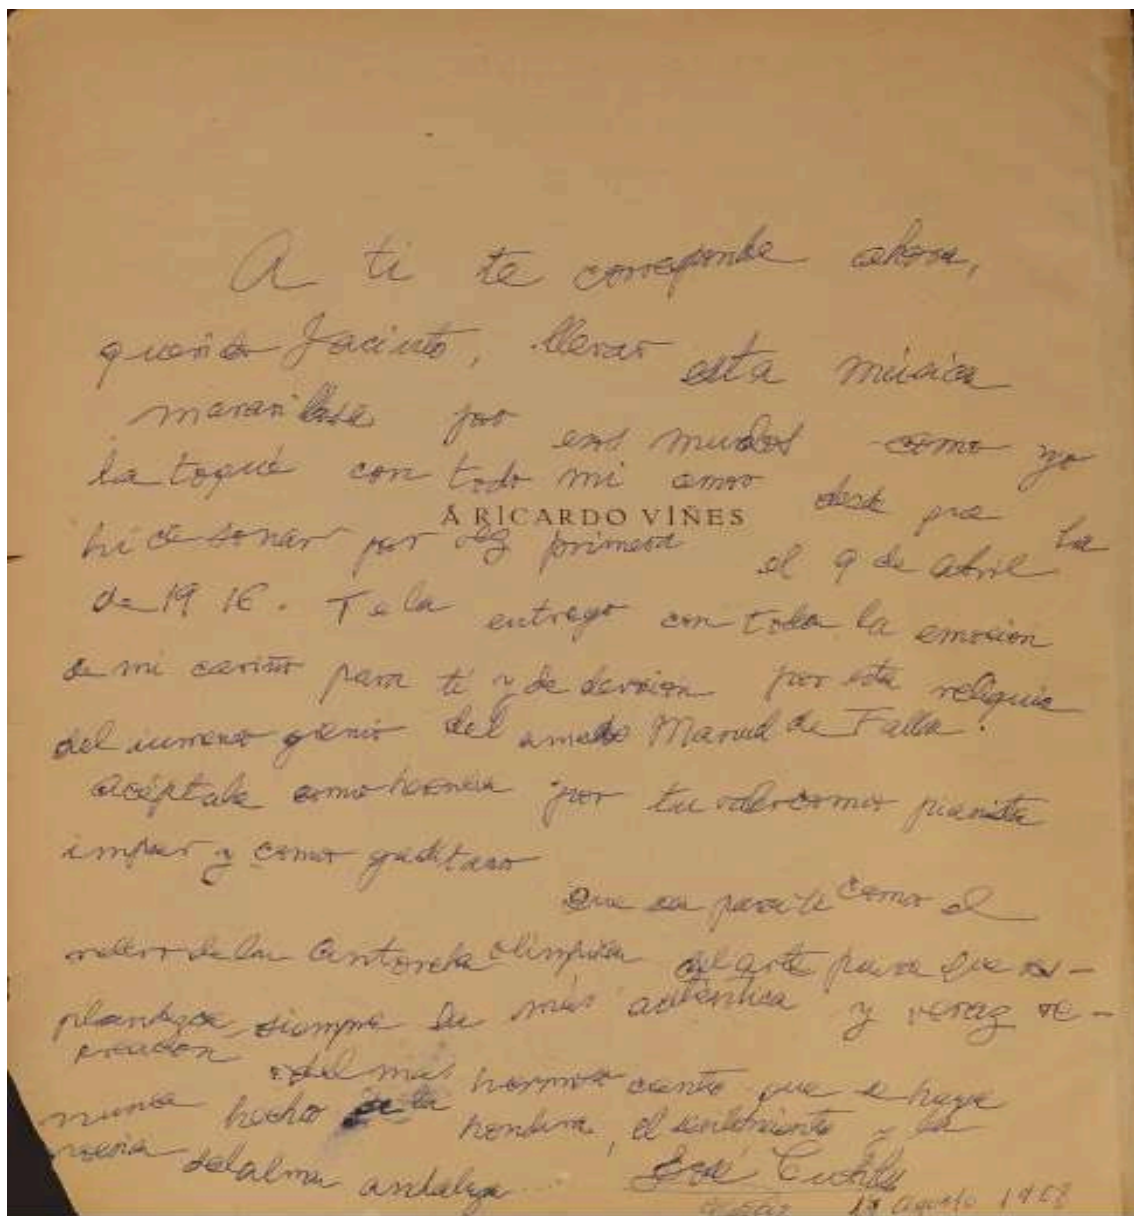 A ti te corresponde ahora,
querido Jacinto, llevar esta música
maravillosa por esos mundos como yo
la toqué con todo mi amor desde que la
À RICARDO VIÑES
hice sonar por vez primera el 9 de abril
de 1916. Te la entrego con toda la emoción
de mi cariño para ti y de devoción por esta reliquia
del inmenso genio del amado Manuel de Falla.
Acéptala como herencia por tu valer como pianista
impar y como gaditano
Que sea para ti como el
relevo de la antorcha olímpica del arte para que res-
plandezca siempre la más auténtica y veraz re-
creación del más hermoso canto que se haya
nunca hecho de la hondura, el sentimiento y la
poesía del alma andaluza...
José Cubiles
17 agosto 1968